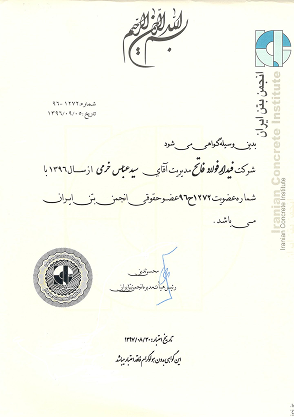 بسم الله الرحمن الرحیم
انجمن بتن ایران
Iranian Concrete Institute
Iranian Concrete Institute
شماره: ۱۲۷۲-۹۶
تاریخ: ۱۳۹۶/۰۹/۰۵
بدین وسیله گواهی می شود
شرکت فیدار فولاد فاتح مدیریت آقای سید عباس خرمی از سال ۱۳۹۶ با
شماره عضویت ۱۲۷۲ح۹۶ عضو حقوقی انجمن بتن ایران
می باشد.
محسن تدین
رئیس هیأت مدیره انجمن بتن ایران
تاریخ اعتبار: ۱۳۹۷/۰۸/۳۰
این گواهی بدون هولوگرام فاقد اعتبار میباشد